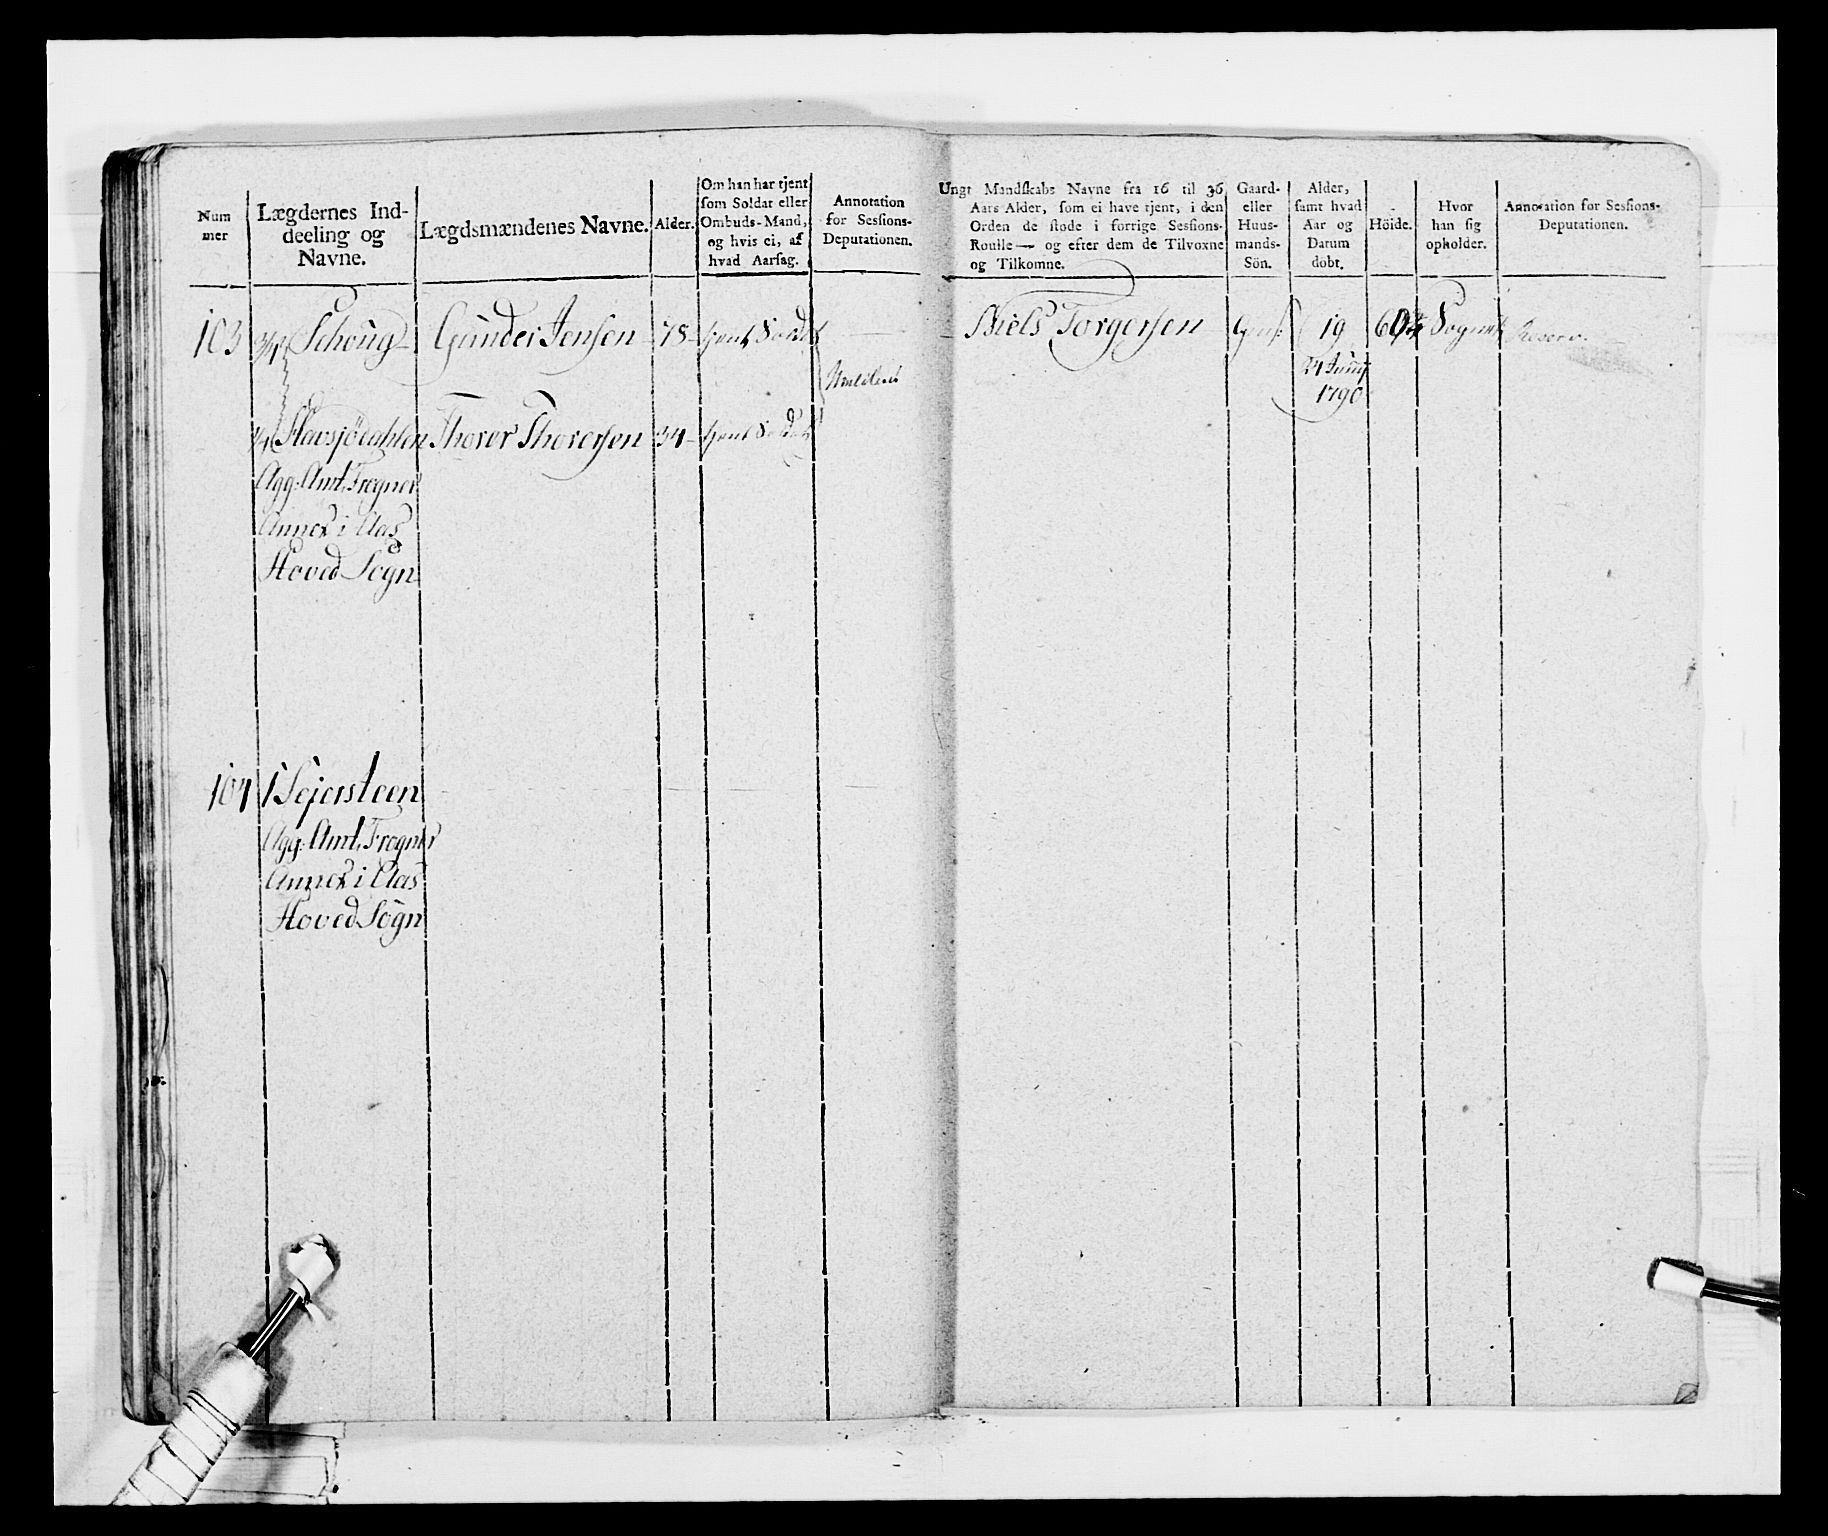 Num
mer
Lægdernes Ind-
deeling og
Navne.
Lægdsmændenes Navne.
Alder.
Om han har tjent
som Soldat eller
Ombuds-Mand,
og hvis ei, af
hvad Aarsag.
Annotation
for Sessions-
Deputationen.
Ungt Mandskabs Navne fra 16 til 36
Aars Alder, som ei have tjent, i den
Orden de stode i forrige Sessions-
Roulle — og efter dem de Tilvoxne
og Tilkomne.
Gaard-
eller
Huus-
mands-
Sön.
Alder,
samt hvad
Aar og
Datum
döbt.
Höide.
Hvor
han sig
opholder.
Annotation for Sessions-
Deputationen.
103 3/4 Schoug Gunder Jensen 78 tjent Soldat
Niels Torgersen 19 Sognet Reserv.
24 Junij
1790
1/4 Havsjödahlen Thorer Thorersen 34 tjent Soldat
Agg: Amt, Frogner
Annex i Aas
Hoved Sogn
104 1 Sejersteen
Agg: Amt, Frogner
Annex i Aas
Hoved Sogn